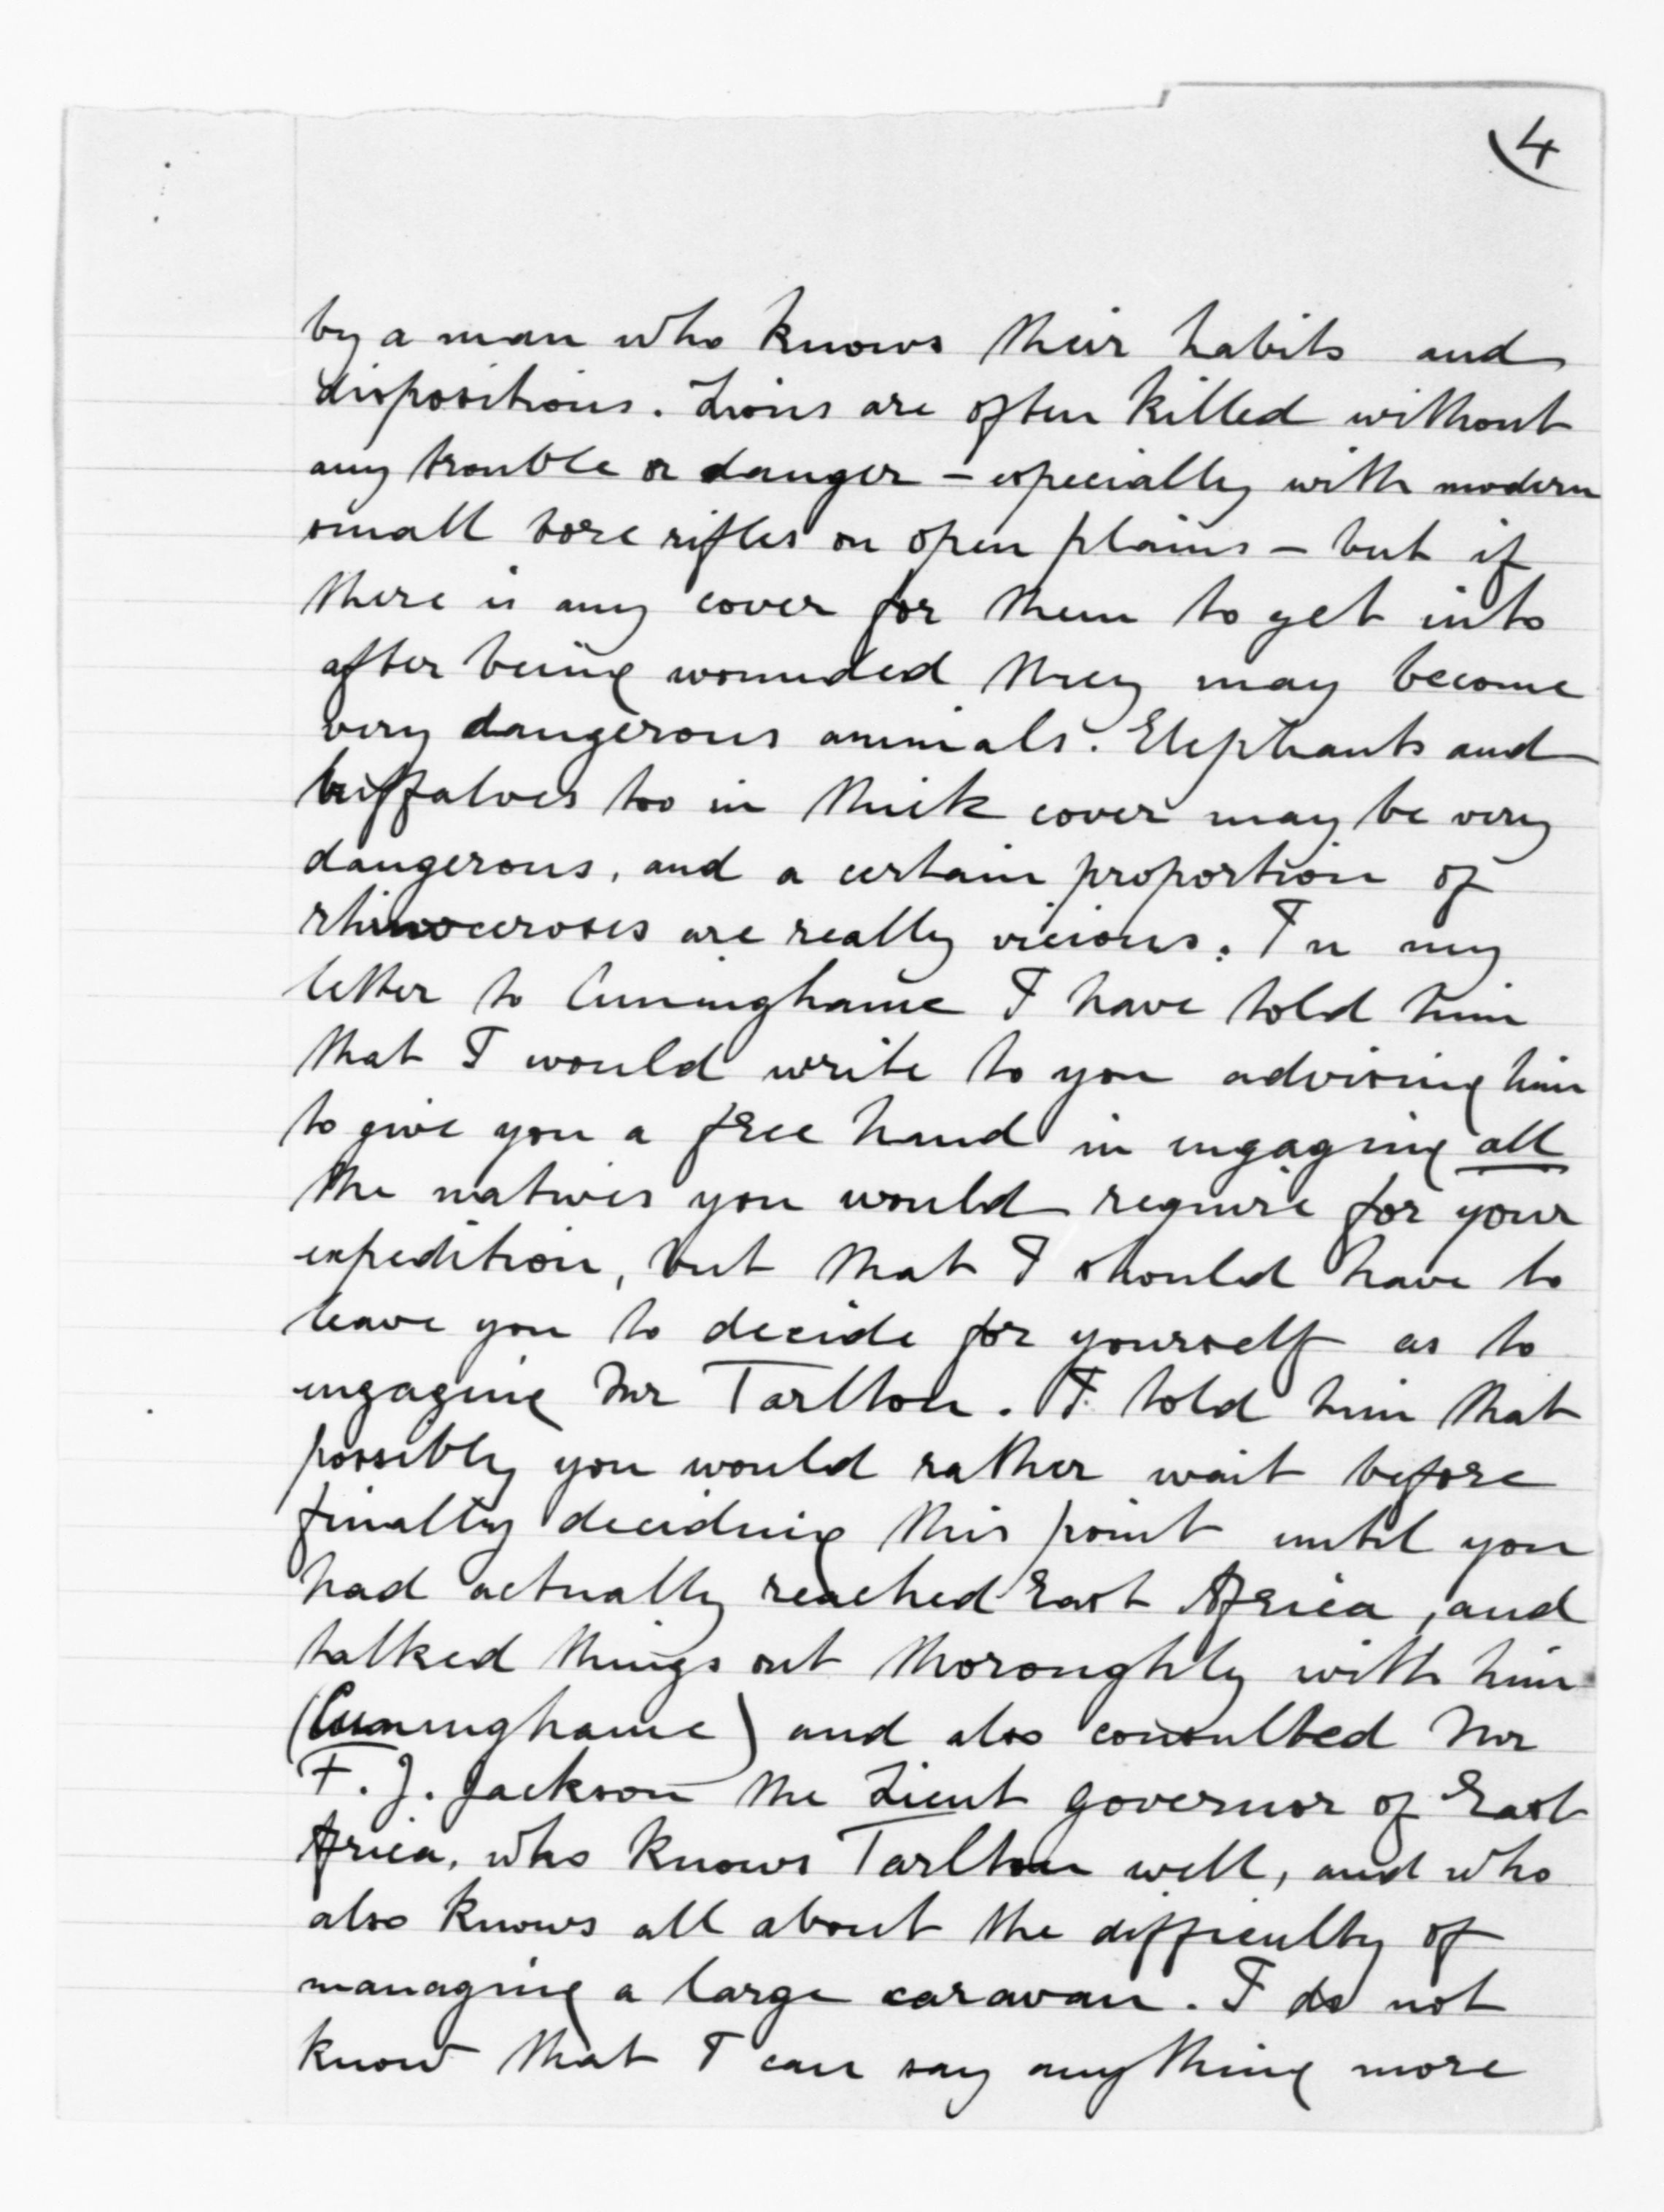 4
by a man who knows their habits and
dispositions. Lions are often killed without
any trouble or danger – especially with modern
small bore rifles on open plains – but if
there is any cover for them to get into
after being wounded they may become
very dangerous animals. Elephants and
buffaloes too in thick cover may be very
dangerous, and a certain proportion of
rhinoceroses are really vicious. In my
letter to Cuninghame I have told him
that I would write to you advising him
to give you a free hand in engaging all
the natives you would require for your
expedition, but that I should have to
leave you to decide for yourself as to
engaging Mr Tarlton. I told him that
possibly you would rather wait before
finally deciding this point until you
had actually reached East Africa, and
talked things out thoroughly with him
(Cuninghame) and also consulted Mr
F. J. Jackson the Lieut governor of East
Africa, who knows Tarlton well, and who
also knows all about the difficulty of
managing a large caravan. I do not
know that I can say anything more